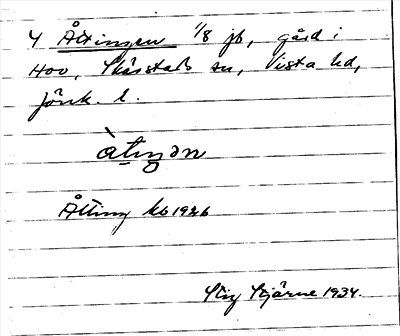 4 Åttingen 1/8 jb, gård i
Hov, Skärstads sn, Vista hd,
Jönk. l.
àtiŋən
Åtting kb 1926
Stig Stjärne 1934.